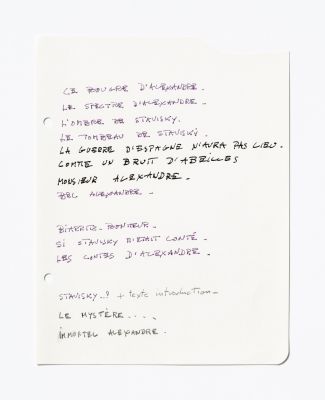 LE BOUGRE D'ALEXANDRE.
LE SPECTRE D'ALEXANDRE.
L'OMBRE DE STAVISKY.
LE TOMBEAU DE STAVISKY.
LA GUERRE D'ESPAGNE N'AURA PAS LIEU.
COMME UN BRUIT D'ABEILLES
MONSIEUR ALEXANDRE.
BEL ALEXANDRE.
BIARRITZ-BONHEUR.
SI STAVISKY M'ÉTAIT CONTÉ.
LES CONTES D'ALEXANDRE.
STAVISKY..? + texte introduction.
LE MYSTÈRE....
IMMORTEL ALEXANDRE.